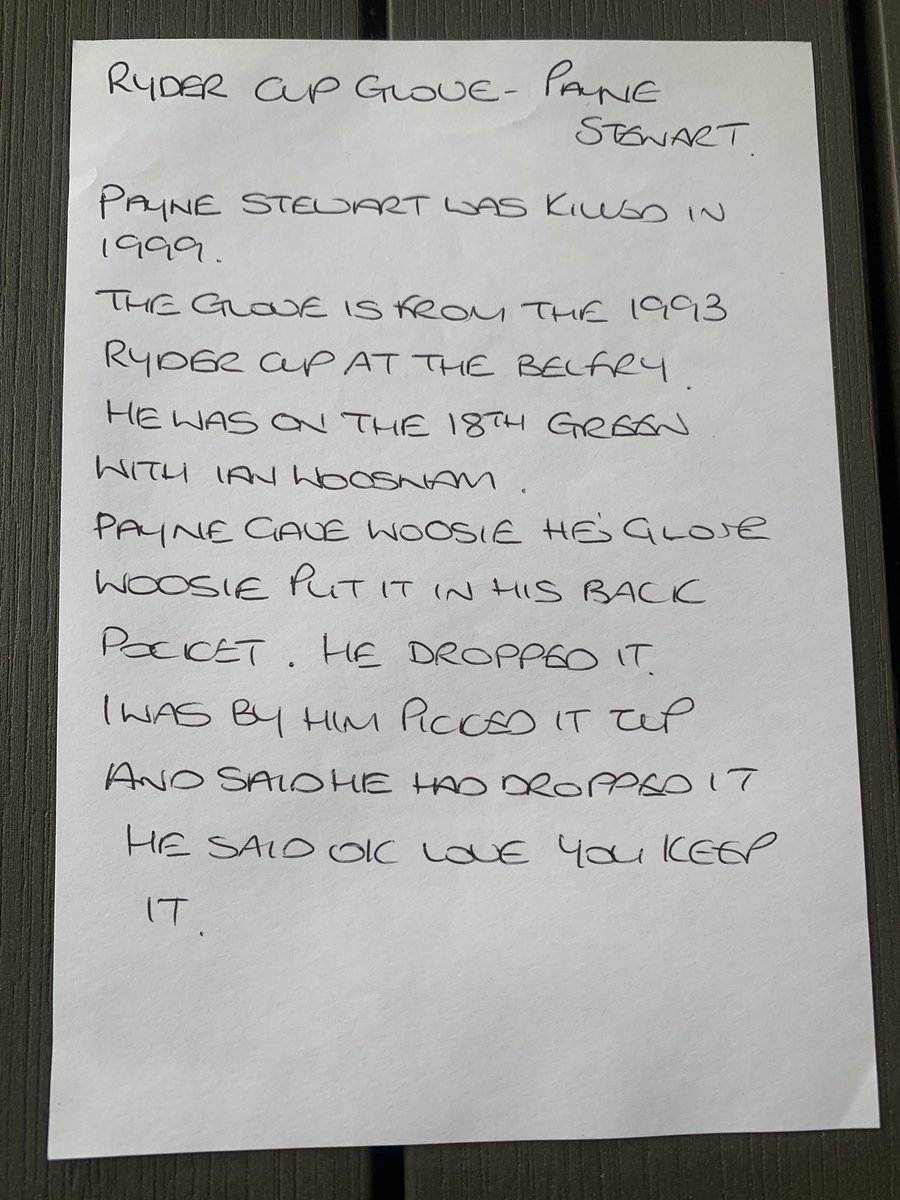 RYDER CUP GLOVE - PAYNE
STEWART.
PAYNE STEWART WAS KILLED IN
1999.
THE GLOVE IS FROM THE 1993
RYDER CUP AT THE BELFRY.
HE WAS ON THE 18TH GREEN
WITH IAN WOOSNAM.
PAYNE GAVE WOOSIE HE'S GLOVE
WOOSIE PUT IT IN HIS BACK
POCKET. HE DROPPED IT.
I WAS BY HIM PICKED IT UP
AND SAID HE HAD DROPPED IT
HE SAID OK LOVE YOU KEEP
IT.